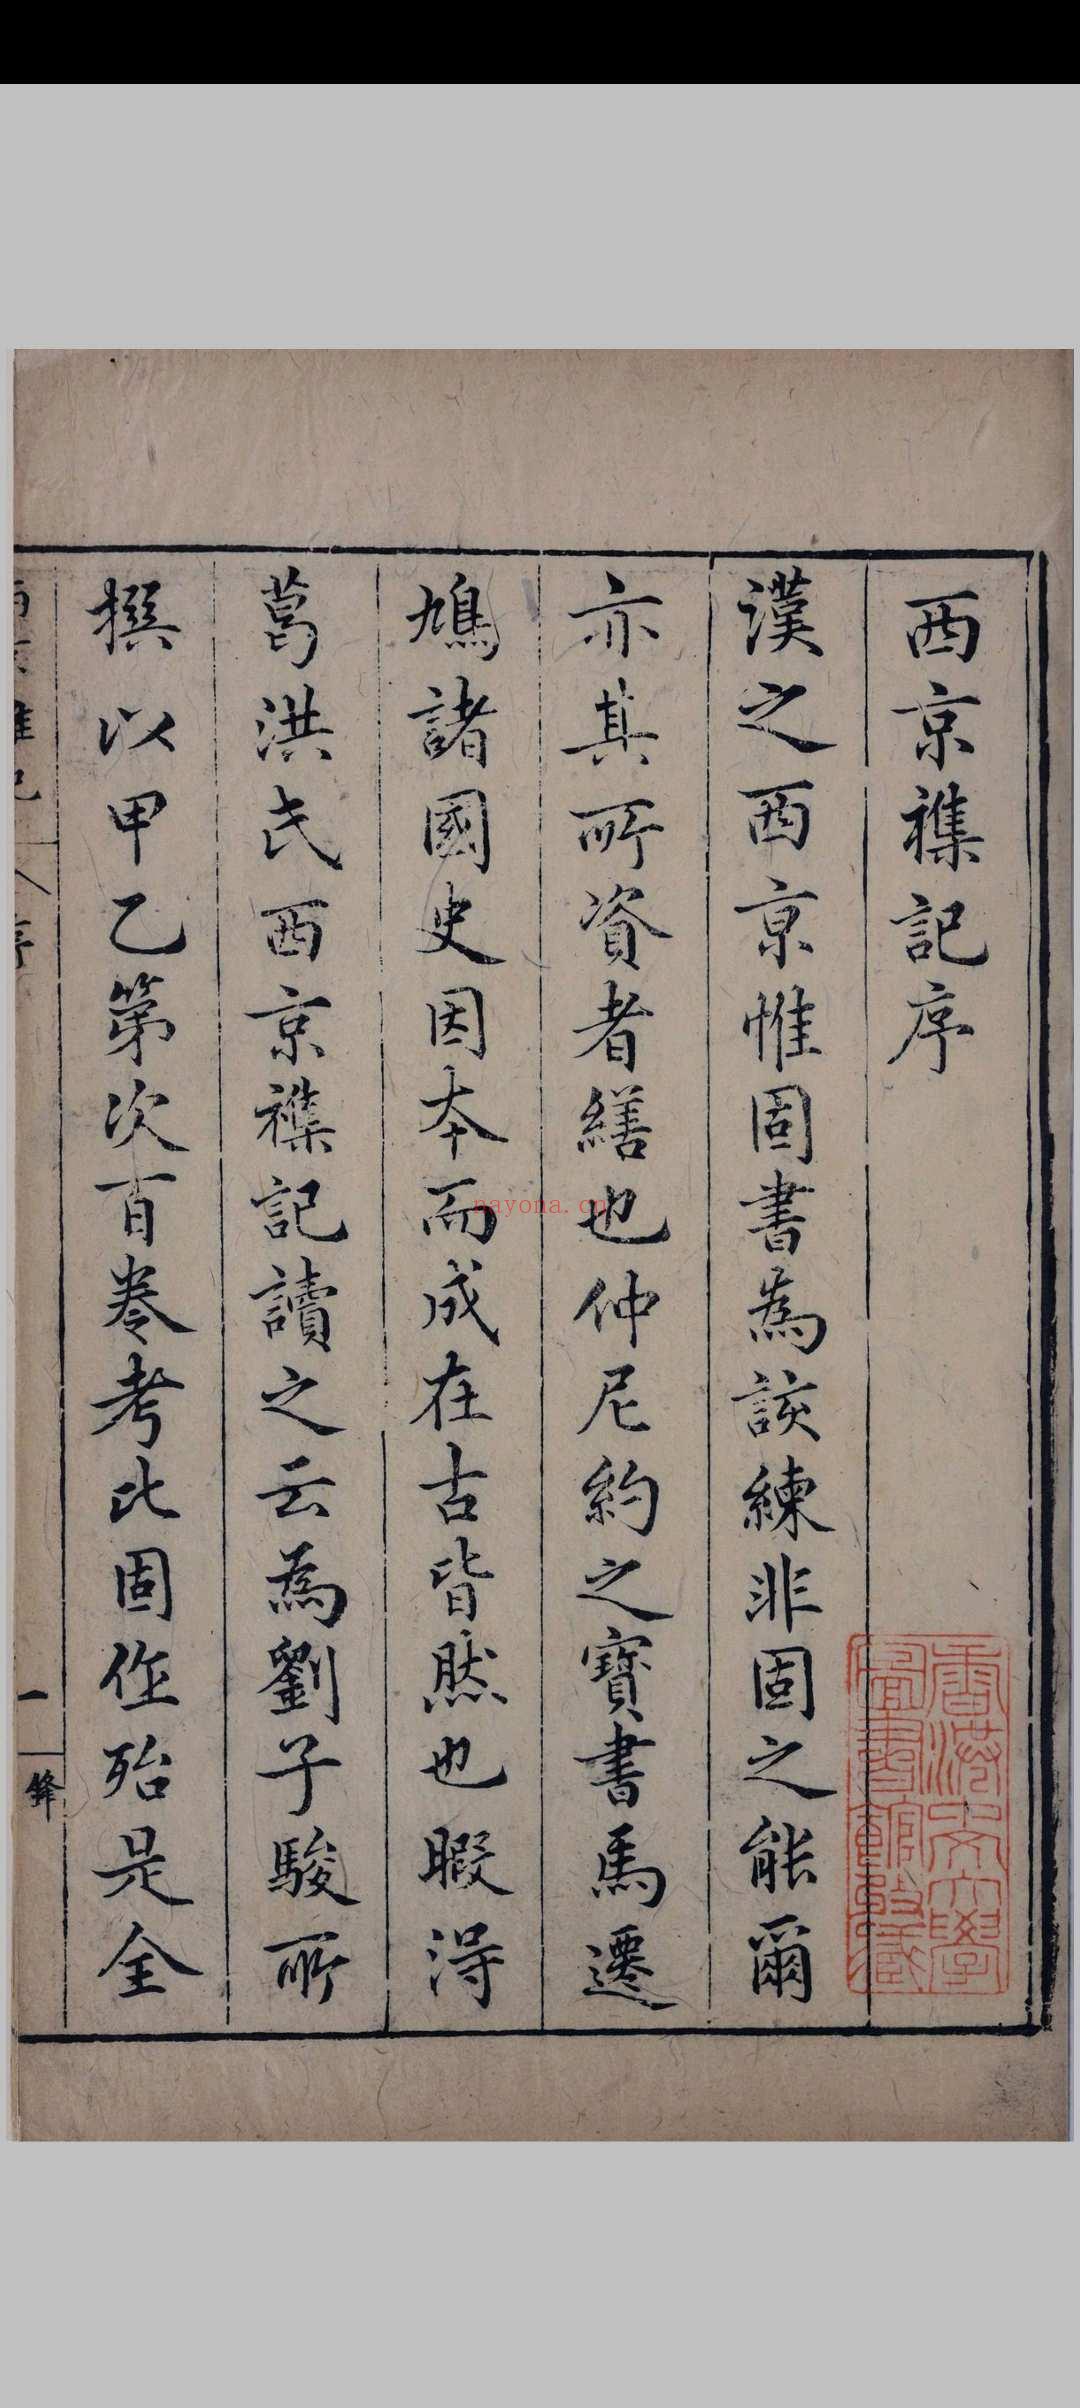 西京襍記序
漢之西京惟固書為該練非固之能爾
亦其所資者繕也仲尼約之寶書馬遷
鳩諸國史因本而成在古皆然也暇淂
葛洪氏西京襍記讀之云為劉子駿所
撰以甲乙第次百卷考比固作殆是全
西京雜記
序
一
鋒
香港中文大學
圖書館敬藏
nayona.cn